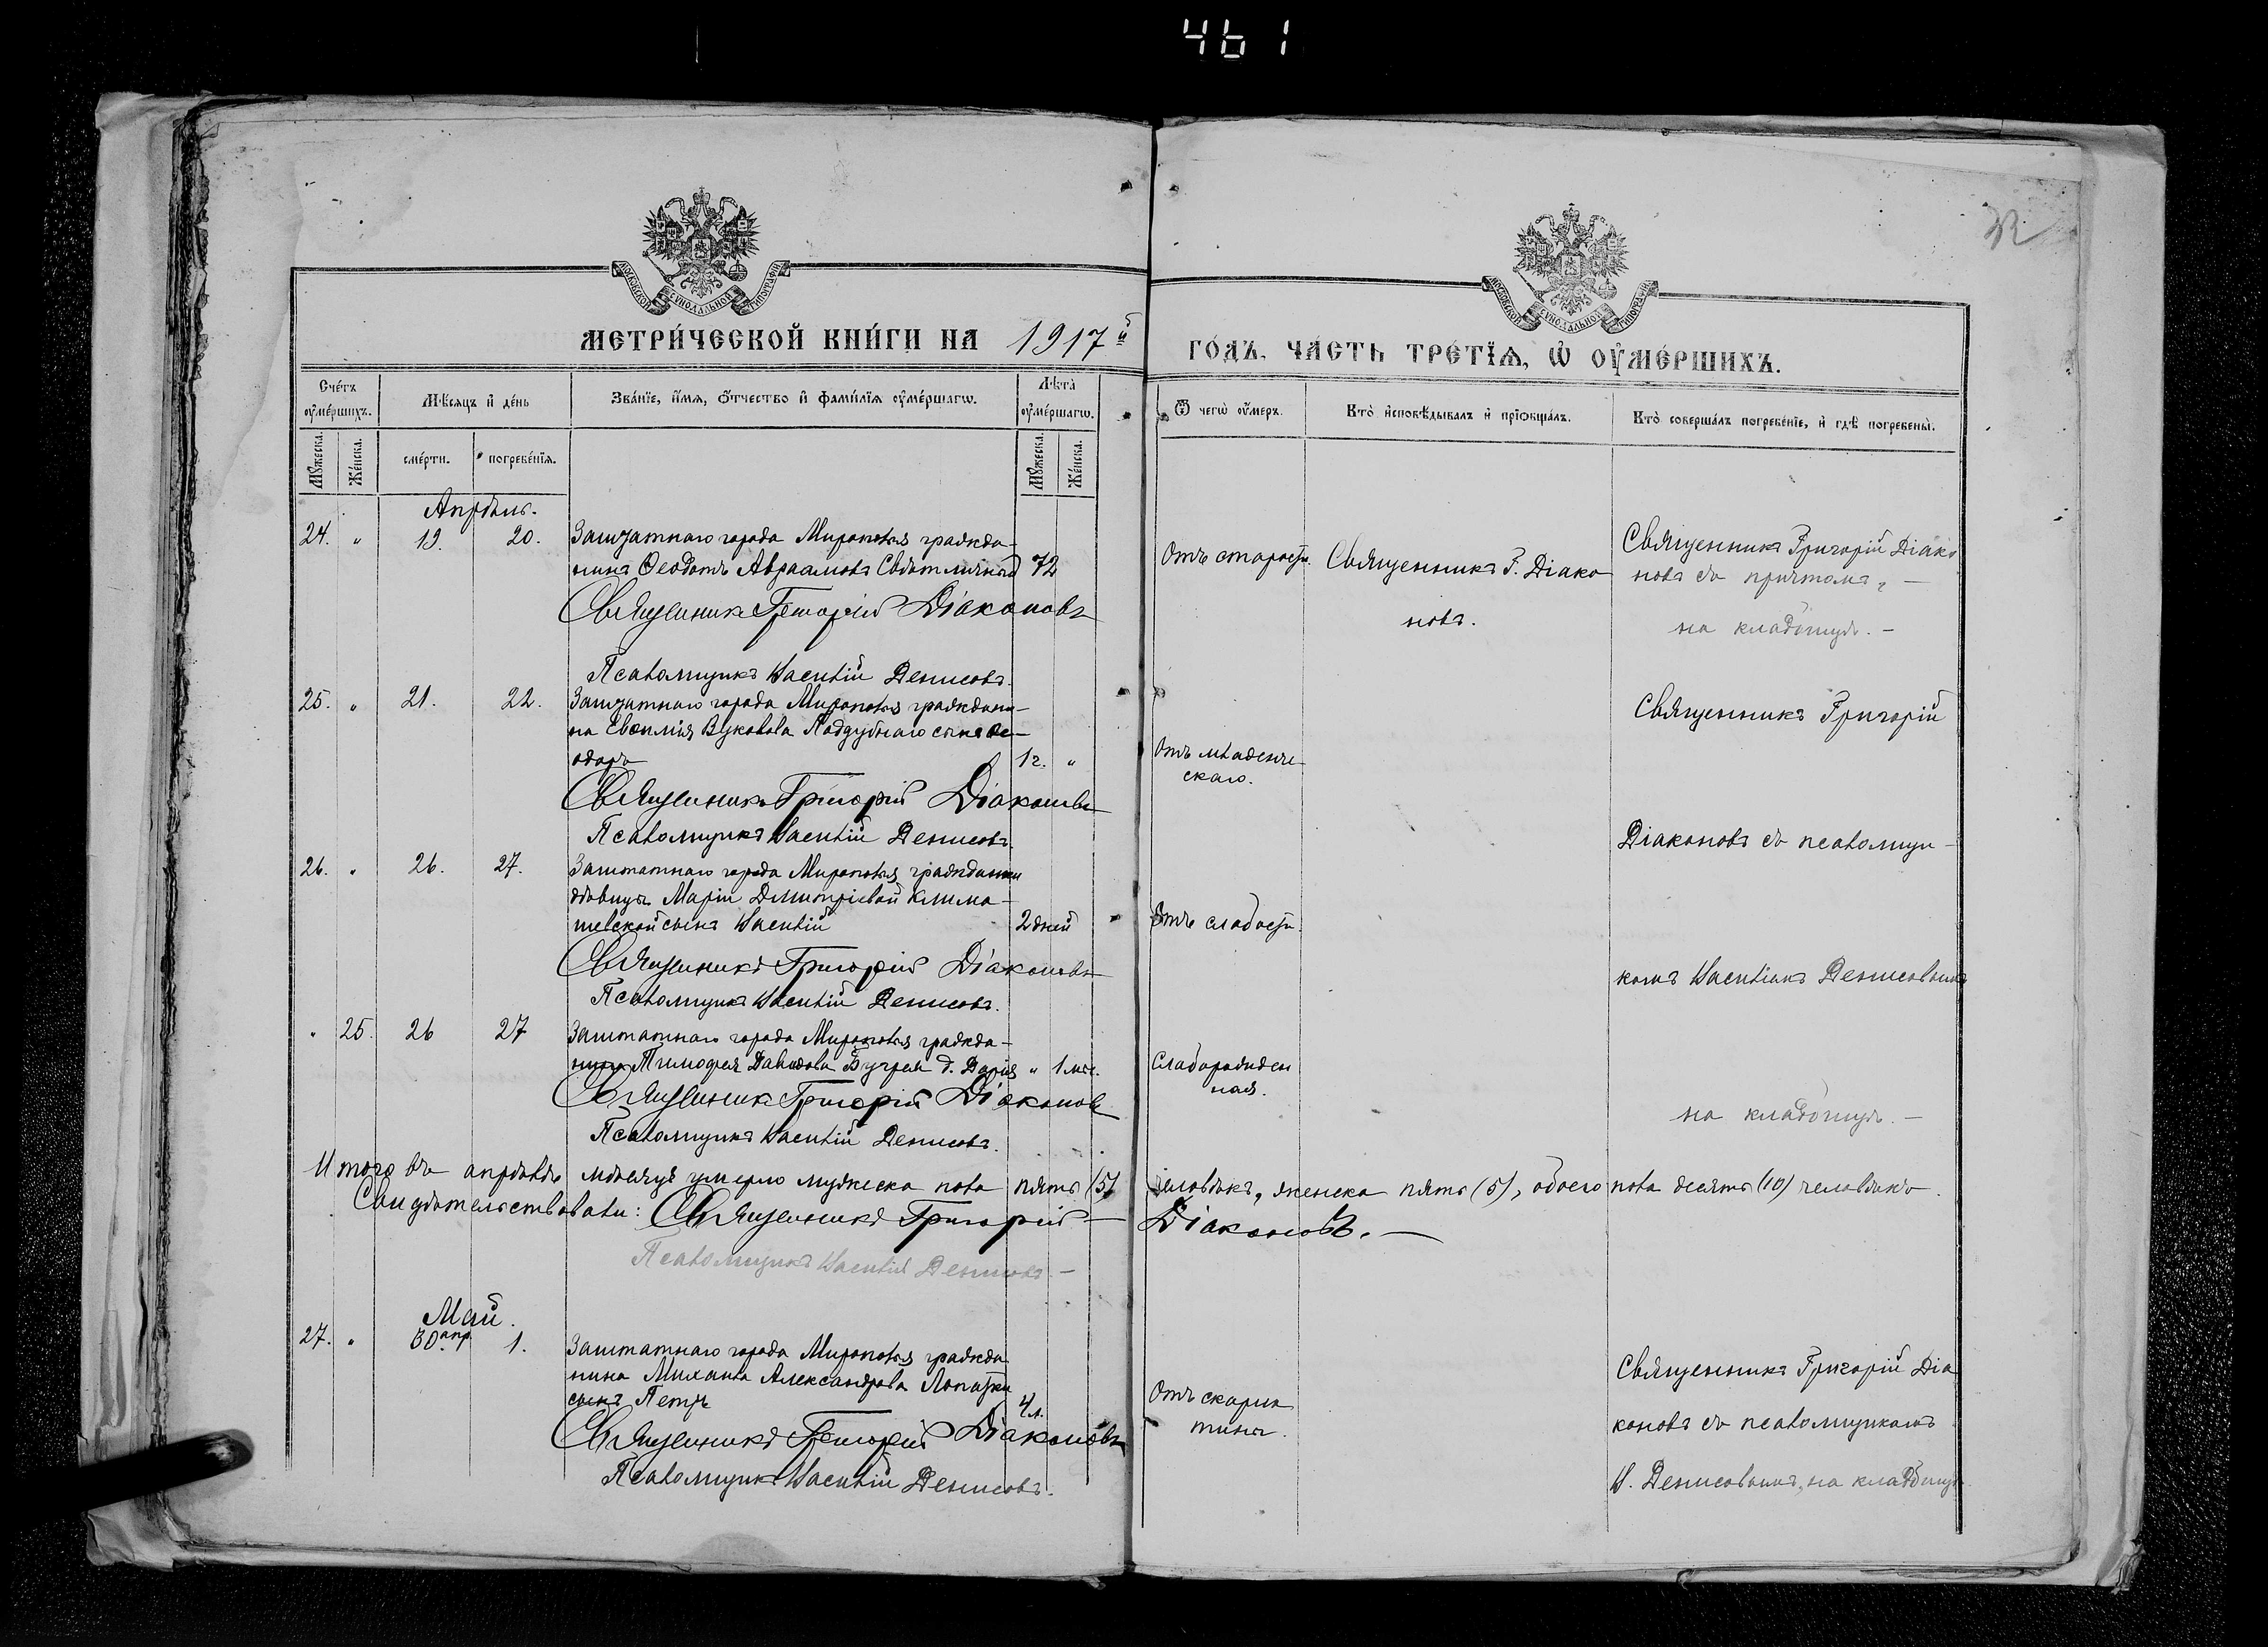 461
32
МОСКОВСКОЙ СѴНОДАЛЬНОЙ ТИПОГРАФІИ
МОСКОВСКОЙ СѴНОДАЛЬНОЙ ТИПОГРАФІИ
МЕТРИ́ЧЕСКОЙ КНИ́ГИ НА 1917й
ГО́ДЪ, ЧА́СТЬ ТРЕ́ТЇѦ, Ѡ҆ ОУ҆МЕ́РШИХЪ.
Сче́тъ оу҆ме́ршихъ.
Мѣ́сяцъ и҆ де́нь
Зва́нїе, и҆́мя, ѻ҆́тчество и҆ фами́лїя оу҆ме́ршагѡ.
Лѣта̀ оу҆ме́ршагѡ.
Ѿ чегѡ̀ оу҆́меръ.
Кто̀ и҆сповѣ́дывалъ и҆ прїѡбща́лъ.
Кто̀ соверша́лъ погребе́нїе, и҆ гдѣ̀ погребены̀.
Мꙋ́жеска.
Же́нска.
сме́рти.
погребе́нїя.
Мꙋ́жеска.
Же́нска.
Апрѣль.
24. " 19. 20. Заштатнаго города Мирополья гражда-
нинъ Ѳеодотъ Авраамовъ Свѣтличный 72
Священникъ Григорій Діаконовъ
Псаломщикъ Василій Денисовъ.
Отъ старости.
Священникъ Г. Діако
новъ.
Священникъ Григорій Діако
новъ съ причтомъ,
на кладбищѣ.
25. " 21. 22. Заштатнаго города Мирополья граждани-
на Евѳимія Вуколова Поддубнаго сынъ Ѳе-
одоръ 1 г. "
Священникъ Григорій Діаконовъ
Псаломщикъ Василій Денисовъ.
Отъ младенче
скаго.
Священникъ Григорій
Діаконовъ съ псаломщи-
26. " 26. 27. Заштатнаго города Мирополья гражданки
дѣвицы Маріи Димитріевой Клима-
шевской сынъ Василій 2 дней
Священникъ Григорій Діаконовъ
Псаломщикъ Василій Денисовъ.
Отъ слабости.
комъ Василіемъ Денисовымъ
" 25. 26 27 Заштатнаго города Мирополья гражда-
нина Тимоѳея Давидова Бучрея д. Дарія " 1 мѣс.
Священникъ Григорій Діаконовъ
Псаломщикъ Василій Денисовъ.
Слаборожден
ная.
на кладбищѣ.
Итого въ апрѣлѣ мѣсяцѣ умерло мужеска пола пять (5) человѣкъ, женска пять (5), обоего пола десять (10) человѣкъ.
Свидѣтельствовали: Священникъ Григорій Діаконовъ.
Псаломщикъ Василій Денисовъ.
Май.
27. " 30 апр. 1. Заштатнаго города Мирополья гражда
нина Михаила Александрова Лопатки
сынъ Петръ 4 л.
Священникъ Григорій Діаконовъ
Псаломщикъ Василій Денисовъ.
Отъ скарла
тины.
Священникъ Григорій Діа
коновъ съ псаломщикомъ
В. Денисовымъ, на кладбищѣ